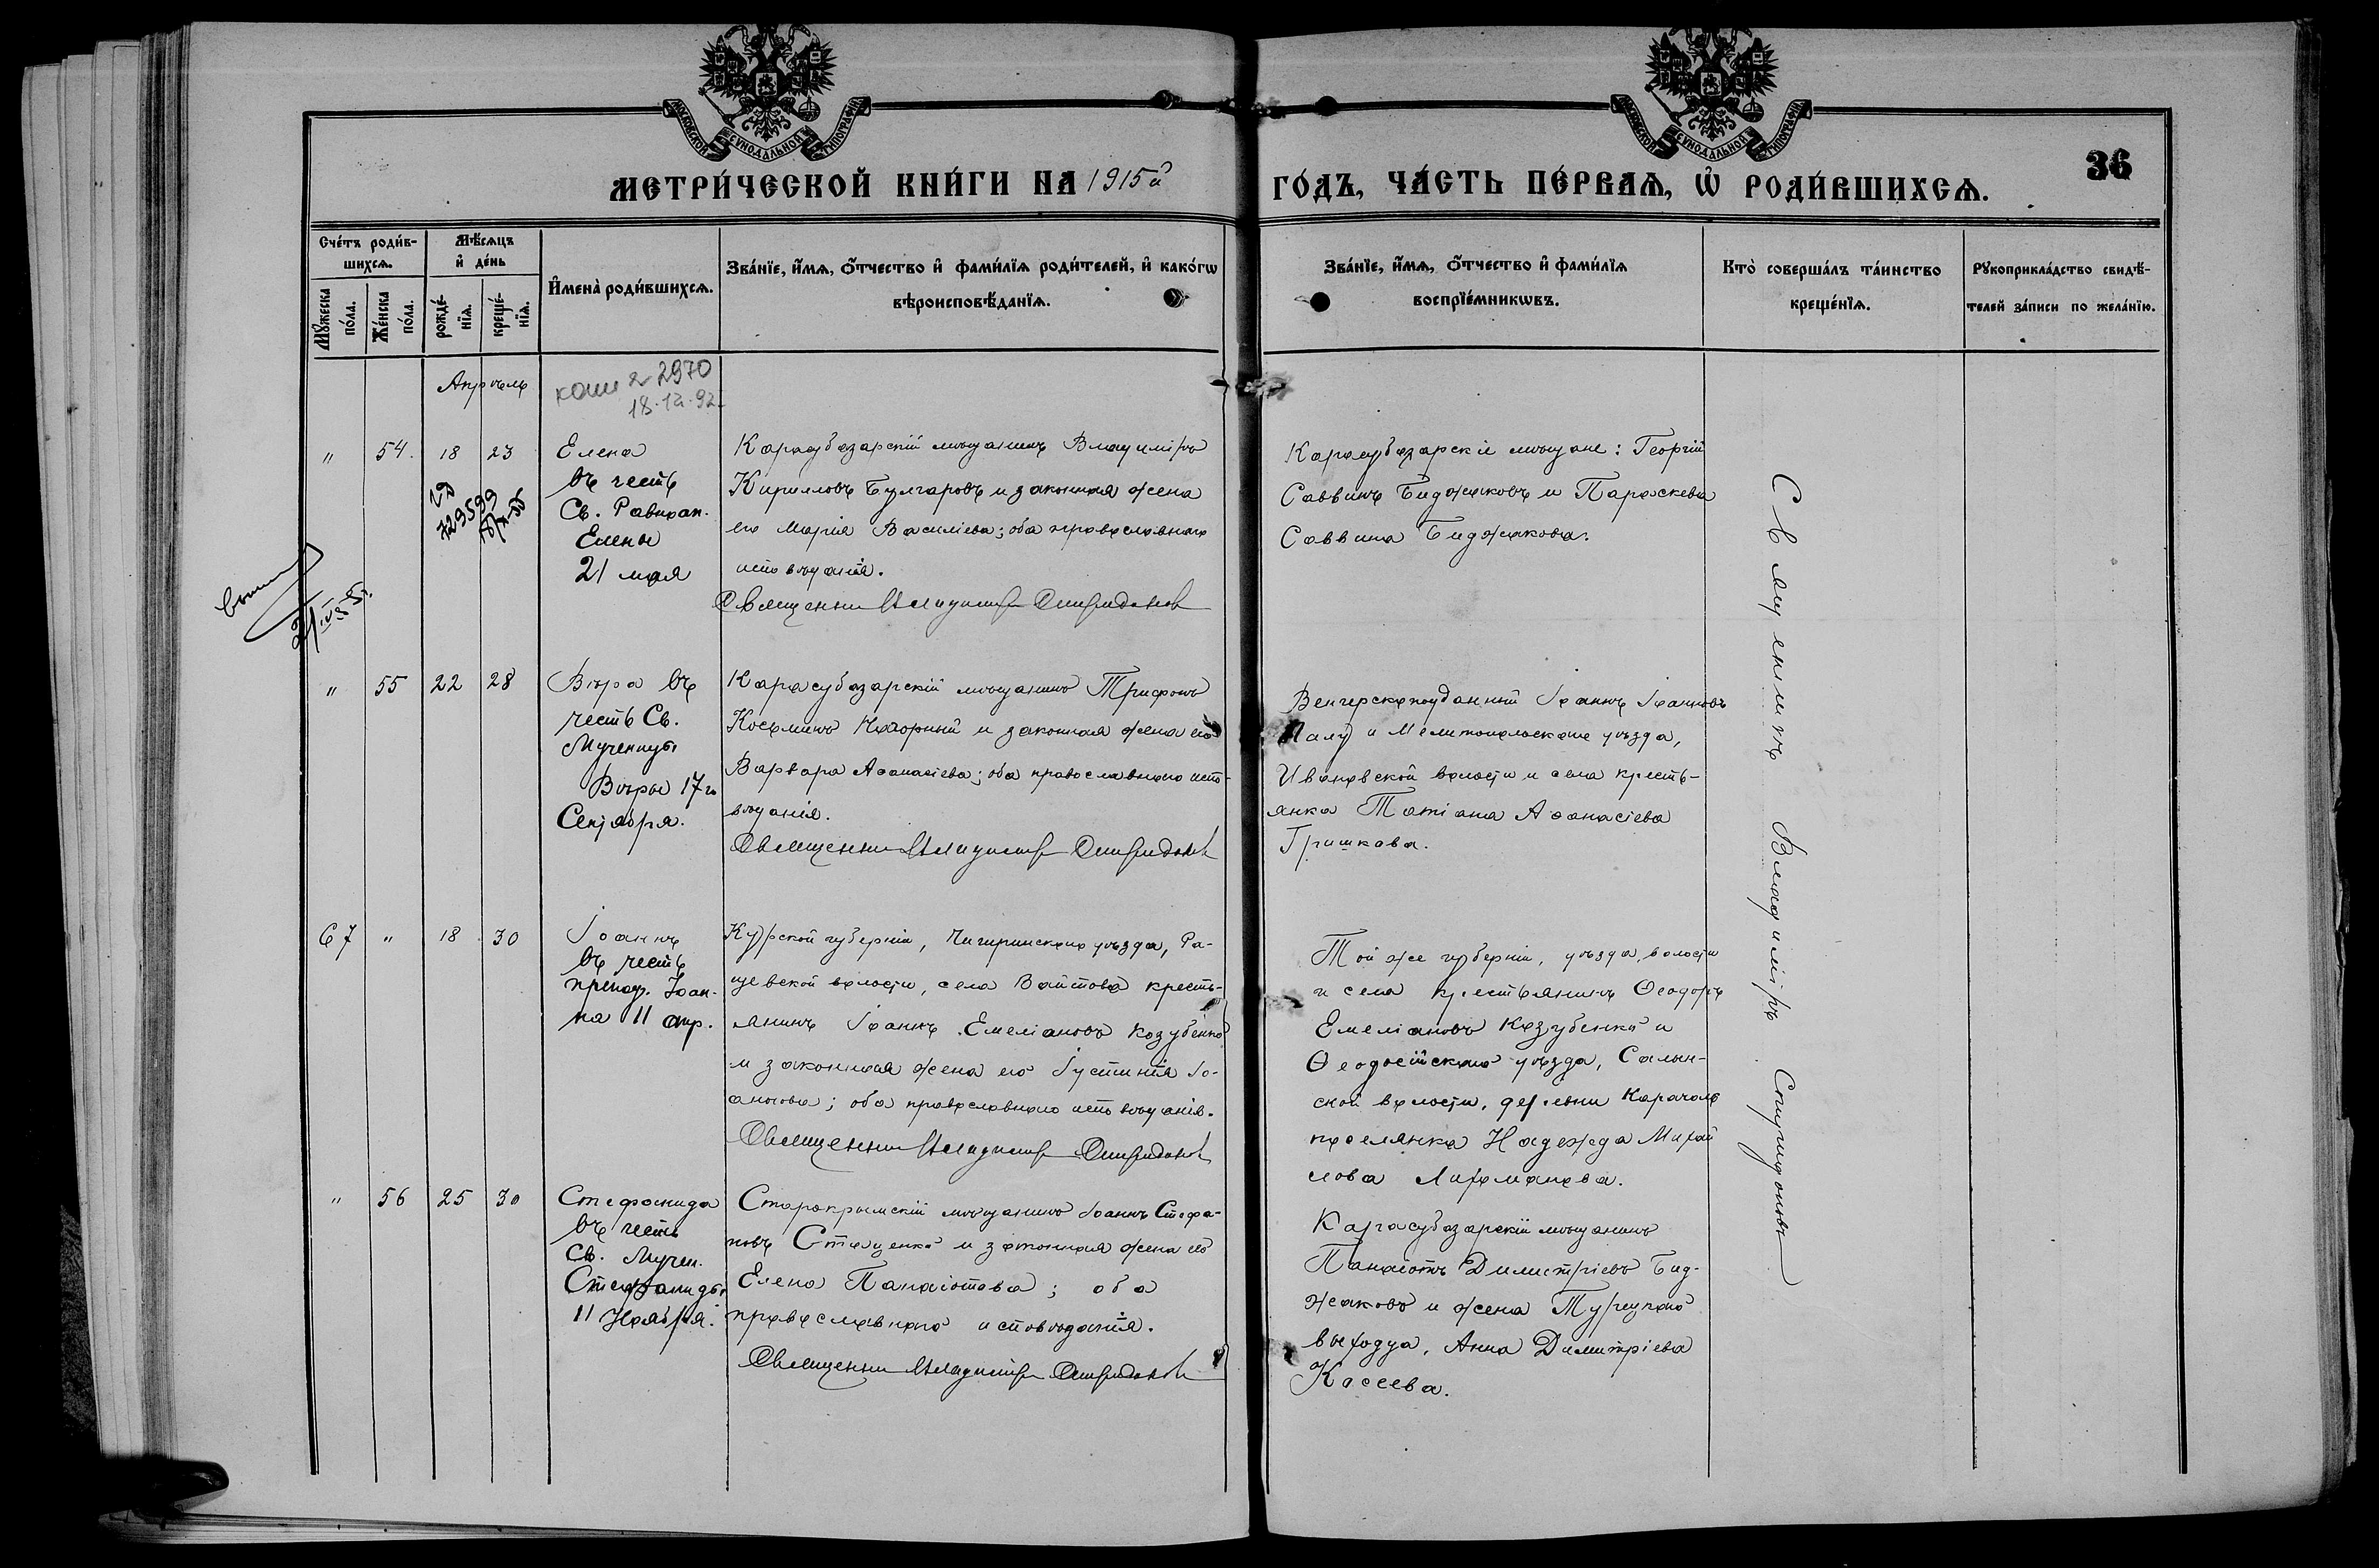 МОСКОВСКОЙ СѴНОДАЛЬНОЙ ТИПОГРАФІИ
МОСКОВСКОЙ СѴНОДАЛЬНОЙ ТИПОГРАФІИ
36
МЕТРИ́ЧЕСКОЙ КНИ́ГИ НА 1915й
ГО́ДЪ, ЧА́СТЬ ПЕ́РВАѦ, Ѡ҆ РОДИ́ВШИХСѦ.
Сче́тъ роди́в-
шихсѧ.
Мѣ́сѧцъ
и҆ де́нь
Мꙋ́жеска
по́ла.
Же́нска
по́ла.
рожде́-
нїѧ.
креще́-
нїѧ.
И҆мена̀ роди́вшихсѧ.
Зва́нїе, и҆́мѧ, ѻ҆́тчество и҆ фами́лїѧ роди́телей, и҆ како́гѡ
вѣроисповѣ́данїѧ.
Зва́нїе, и҆́мѧ, ѻ҆́тчество и҆ фами́лїѧ
воспрїе́мникѡвъ.
Кто̀ соверша́лъ та́инство
креще́нїѧ.
Рꙋкоприкла́дство свидѣ́-
телей за́писи по жела́нїю.
Апрѣль
2970
18.12.92
" 54. 18 23
Елена
въ честь
Св. Равноап.
Елены
21 мая
729599
Карасубазарскій мѣщанинъ Владиміръ
Кирилловъ Булгаровъ и законная жена
его Марія Василіева; оба православнаго
исповѣданія.
Священникъ Владиміръ Спиридоновъ
Карасубазарскіе мѣщане: Георгій
Саввинъ Биджаковъ и Параскева
Саввина Биджакова.
Священникъ Владиміръ Спиридоновъ
" 55 22 28
Вѣра въ
честь Св.
Мученицы
Вѣры 17го
Сентября.
Карасубазарскій мѣщанинъ Трифонъ
Косьминъ Нагорный и законная жена его
Варвара Аѳанасіева; оба православнаго испо-
вѣданія.
Священникъ Владиміръ Спиридоновъ
Венгерскоподданный Іоаннъ Іоанновъ
и Мелитопольскаго уѣзда,
Ивановской волости и села кресть-
янка Татіана Аѳанасіева
Гришкова.
67 " 18 30
Іоаннъ
въ честь
препод. Іоан-
на 11 апр.
Курской губерніи, Чигиринскаго уѣзда, Ра-
цевской волости, села Войтова кресть-
янинъ Іоаннъ Емеліановъ Козубенко
и законная жена его Іустинія Іо-
аннова; оба православнаго исповѣданія.
Священникъ Владиміръ Спиридоновъ
Той же губерніи, уѣзда, волости
и села крестьянинъ Ѳеодоръ
Емеліановъ Козубенко и
Ѳеодосійскаго уѣзда, Салын-
ской волости, деревни Карачоль
поселянка Надежда Михай
лова
" 56 25 30
Стефанида
въ честь
Св. Мучен.
Стефаниды
11 Ноября.
Старокрымскій мѣщанинъ Іоаннъ Стефа-
новъ Стаценко и законная жена его
Елена Панаіотова; оба
православнаго исповѣданія.
Священникъ Владиміръ Спиридоновъ
Карасубазарскій мѣщанинъ
Панаіотъ Димитріевъ Бид-
жаковъ и жена Турецкаго
выходца, Анна Димитріева
Касеева.